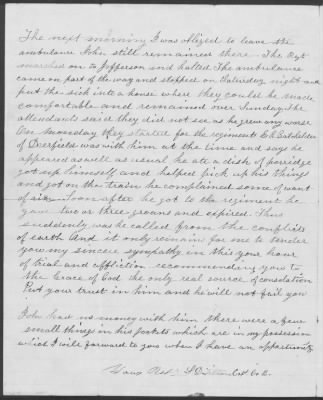 The next morning I was obliged to leave the
ambulance John still remained there. The Regt
marched on to Jefferson and halted The ambulance
came on part of the way and stopped on Saturday night and
put the sick into a house where they could be made
comfortable and remained over Sunday. The
attendants said they did not see as he grew any worse
On Monday they started for the regiment
of Deerfield was with him at the time and says he
appeared as well as usual he ate a dish of porridge
got up himself and helped pick up his things
and got on the train he complained some of want
of air Soon after he got to the regiment he
gave two or three groans and expired. Thus
suddenly was he called from the conflicts
of earth And it only remains for me to tender
you my sincere sympathy in this your hour
of trial and affliction recommending you to
the Grace of God the only real source of consolation
Put your trust in him and he will not fail you
John had no money with him there were a few
small things in his pockets which are in my possession
which I will forward to you when I have an opportunity
Yours Capt Co.